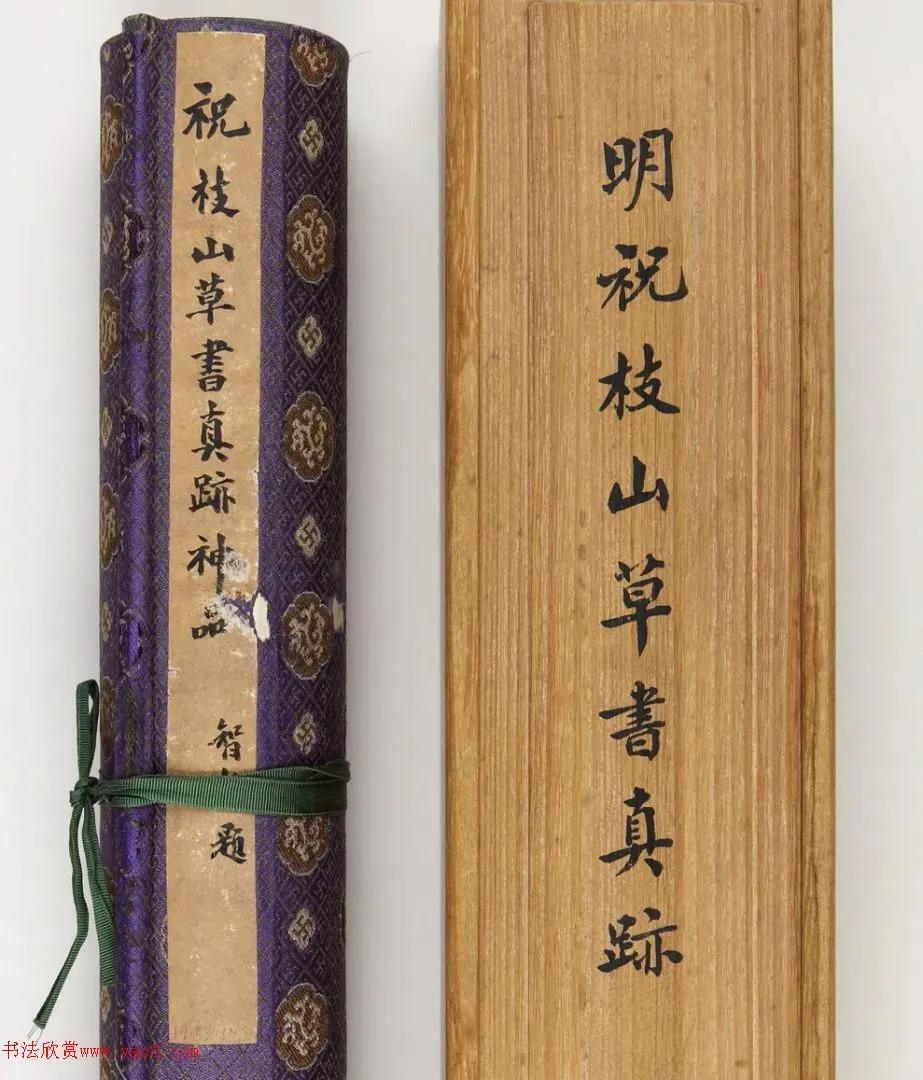 明祝枝山草書真跡
祝枝山草書真跡神品
智 題
书法欣赏www.